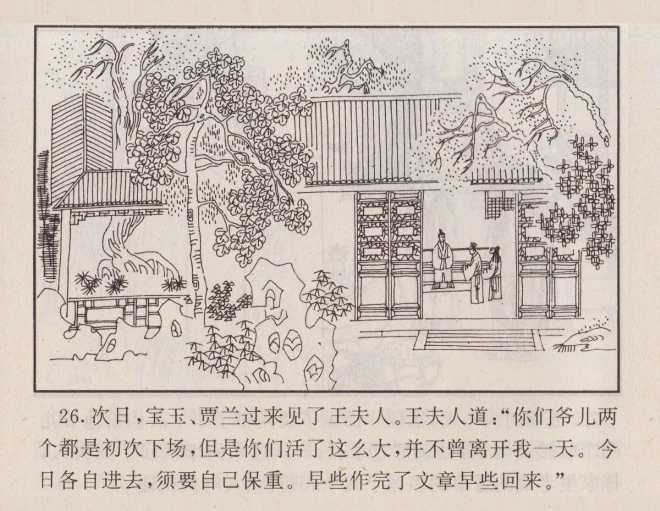 26.次日，宝玉、贾兰过来见了王夫人。王夫人道：“你们爷儿两
个都是初次下场，但是你们活了这么大，并不曾离开我一天。今
日各自进去，须要自己保重。早些作完了文章早些回来。”